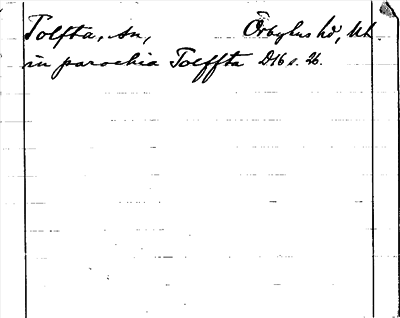 Tolfta, sn, Örbyhus hd, Upl.
in parochia Tolffta D16 s. 26.